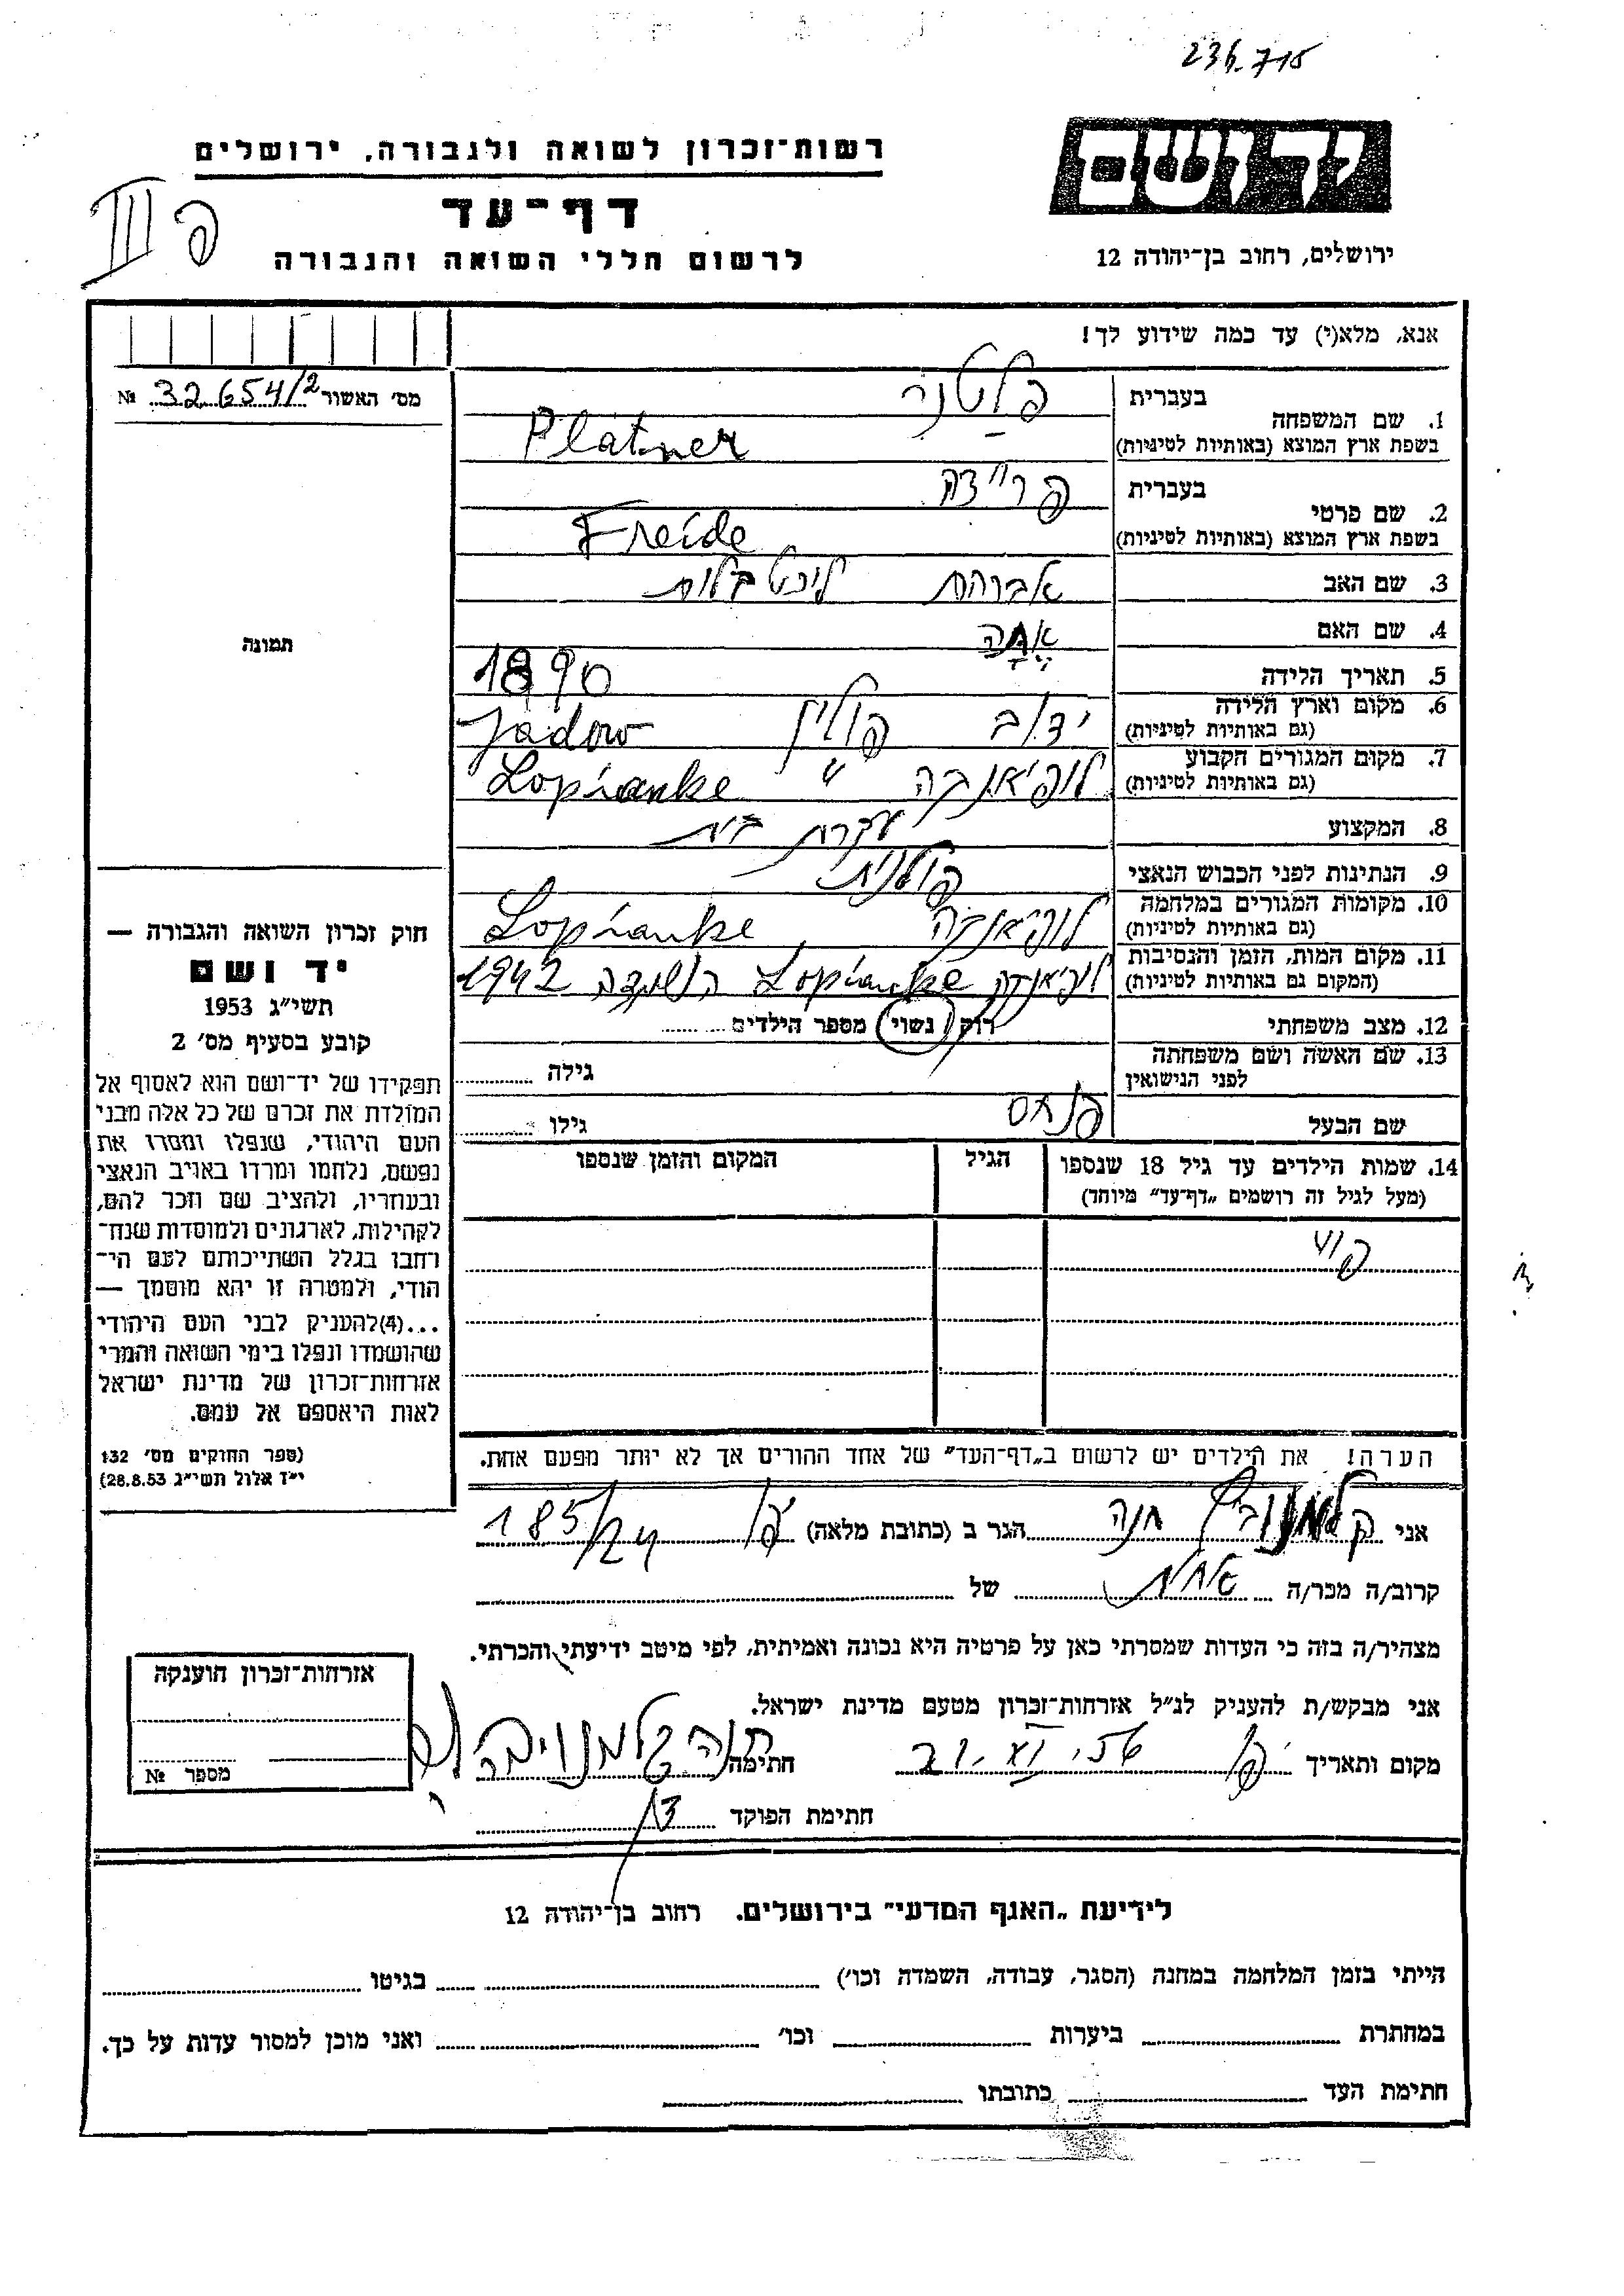 236.715
רשות־זכרון לשואה ולגבורה, ירושלים
יד ושם
דף־עד
פ III
לרשום חללי השואה והגבורה
ירושלים, רחוב בן־יהודה 12
אנא, מלא(י) עד כמה שידוע לך!
מס׳ האשור 32654/2 №
תמונה
1. שם המשפחה
בעברית פלטנר
בשפת ארץ המוצא (באותיות לטיניות) Platner
2. שם פרטי
בעברית פריידה
בשפת ארץ המוצא (באותיות לטיניות) Freide
3. שם האב אברהם
4. שם האם
5. תאריך הלידה 1890
6. מקום וארץ הלידה ידוב פולין Jadow
(גם באותיות לטיניות)
7. מקום המגורים הקבוע לופיאנקה " Lopianke
(גם באותיות לטיניות)
8. המקצוע עקרת בית
9. הנתינות לפני הכבוש הנאצי פולנית
10. מקומות המגורים במלחמה לופיאנקה, Lopianke
(גם באותיות לטיניות)
11. מקום המות, הזמן והנסיבות לופיאנקה Lopianke השמדה 1942
(המקום גם באותיות לטיניות)
12. מצב משפחתי רווק נשוי מספר הילדים
13. שם האשה ושם משפחתה גילה
לפני הנישואין
שם הבעל פנחס גילו
14. שמות הילדים עד גיל 18 שנספו הגיל המקום והזמן שנספו
(מעל לגיל זה רושמים „דף־עד״ מיוחד)
הערה! את הילדים יש לרשום ב„דף־העד״ של אחד ההורים אך לא יותר מפעם אחת.
חוק זכרון השואה והגבורה —
יד ושם
תשי״ג 1953
קובע בסעיף מס׳ 2
תפקידו של יד־ושם הוא לאסוף אל
המולדת את זכרם של כל אלה מבני
העם היהודי, שנפלו ומסרו את
נפשם, נלחמו ומרדו באויב הנאצי
ובעוזריו, ולהציב שם וזכר להם,
לקהילות, לארגונים ולמוסדות שנח־
רבו בגלל השתייכותם לעם הי־
הודי, ולמטרה זו יהא מוסמך —
...(4)להעניק לבני העם היהודי
שהושמדו ונפלו בימי השואה והמרי
אזרחות־זכרון של מדינת ישראל
לאות היאספם אל עמם.
(ספר החוקים מס׳ 132
י״ז אלול תשי״ג 28.8.53)
אני קלמנוביץ חנה הגר ב (כתובת מלאה) 185/24
קרוב/ה מכר/ה אחות של
מצהיר/ה בזה כי העדות שמסרתי כאן על פרטיה היא נכונה ואמיתית, לפי מיטב ידיעתי והכרתי.
אני מבקש/ת להעניק לנ״ל אזרחות־זכרון מטעם מדינת ישראל.
מקום ותאריך חתימה חנה קלמנוביץ
חתימת הפוקד
אזרחות־זכרון הוענקה
מספר №
לידיעת „האגף המדעי״ בירושלים. רחוב בן־יהודה 12
הייתי בזמן המלחמה במחנה (הסגר, עבודה, השמדה וכו׳) בגיטו
במחתרת ביערות וכו׳ ואני מוכן למסור עדות על כך.
חתימת העד כתובתו